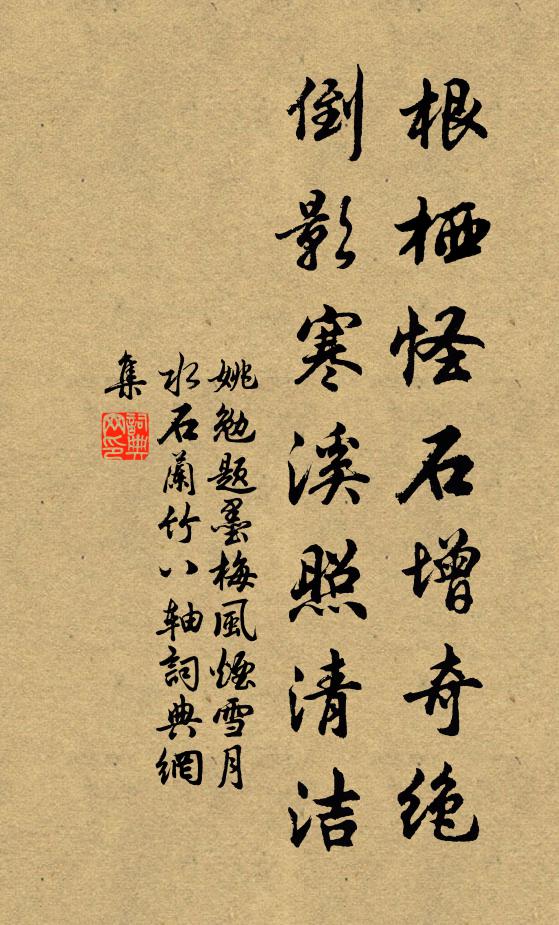 根栖怪石增奇绝
倒影寒溪照清洁
姚勉题墨梅風煙雪月
水石蘭竹八轴詞典網
集
詞典網印